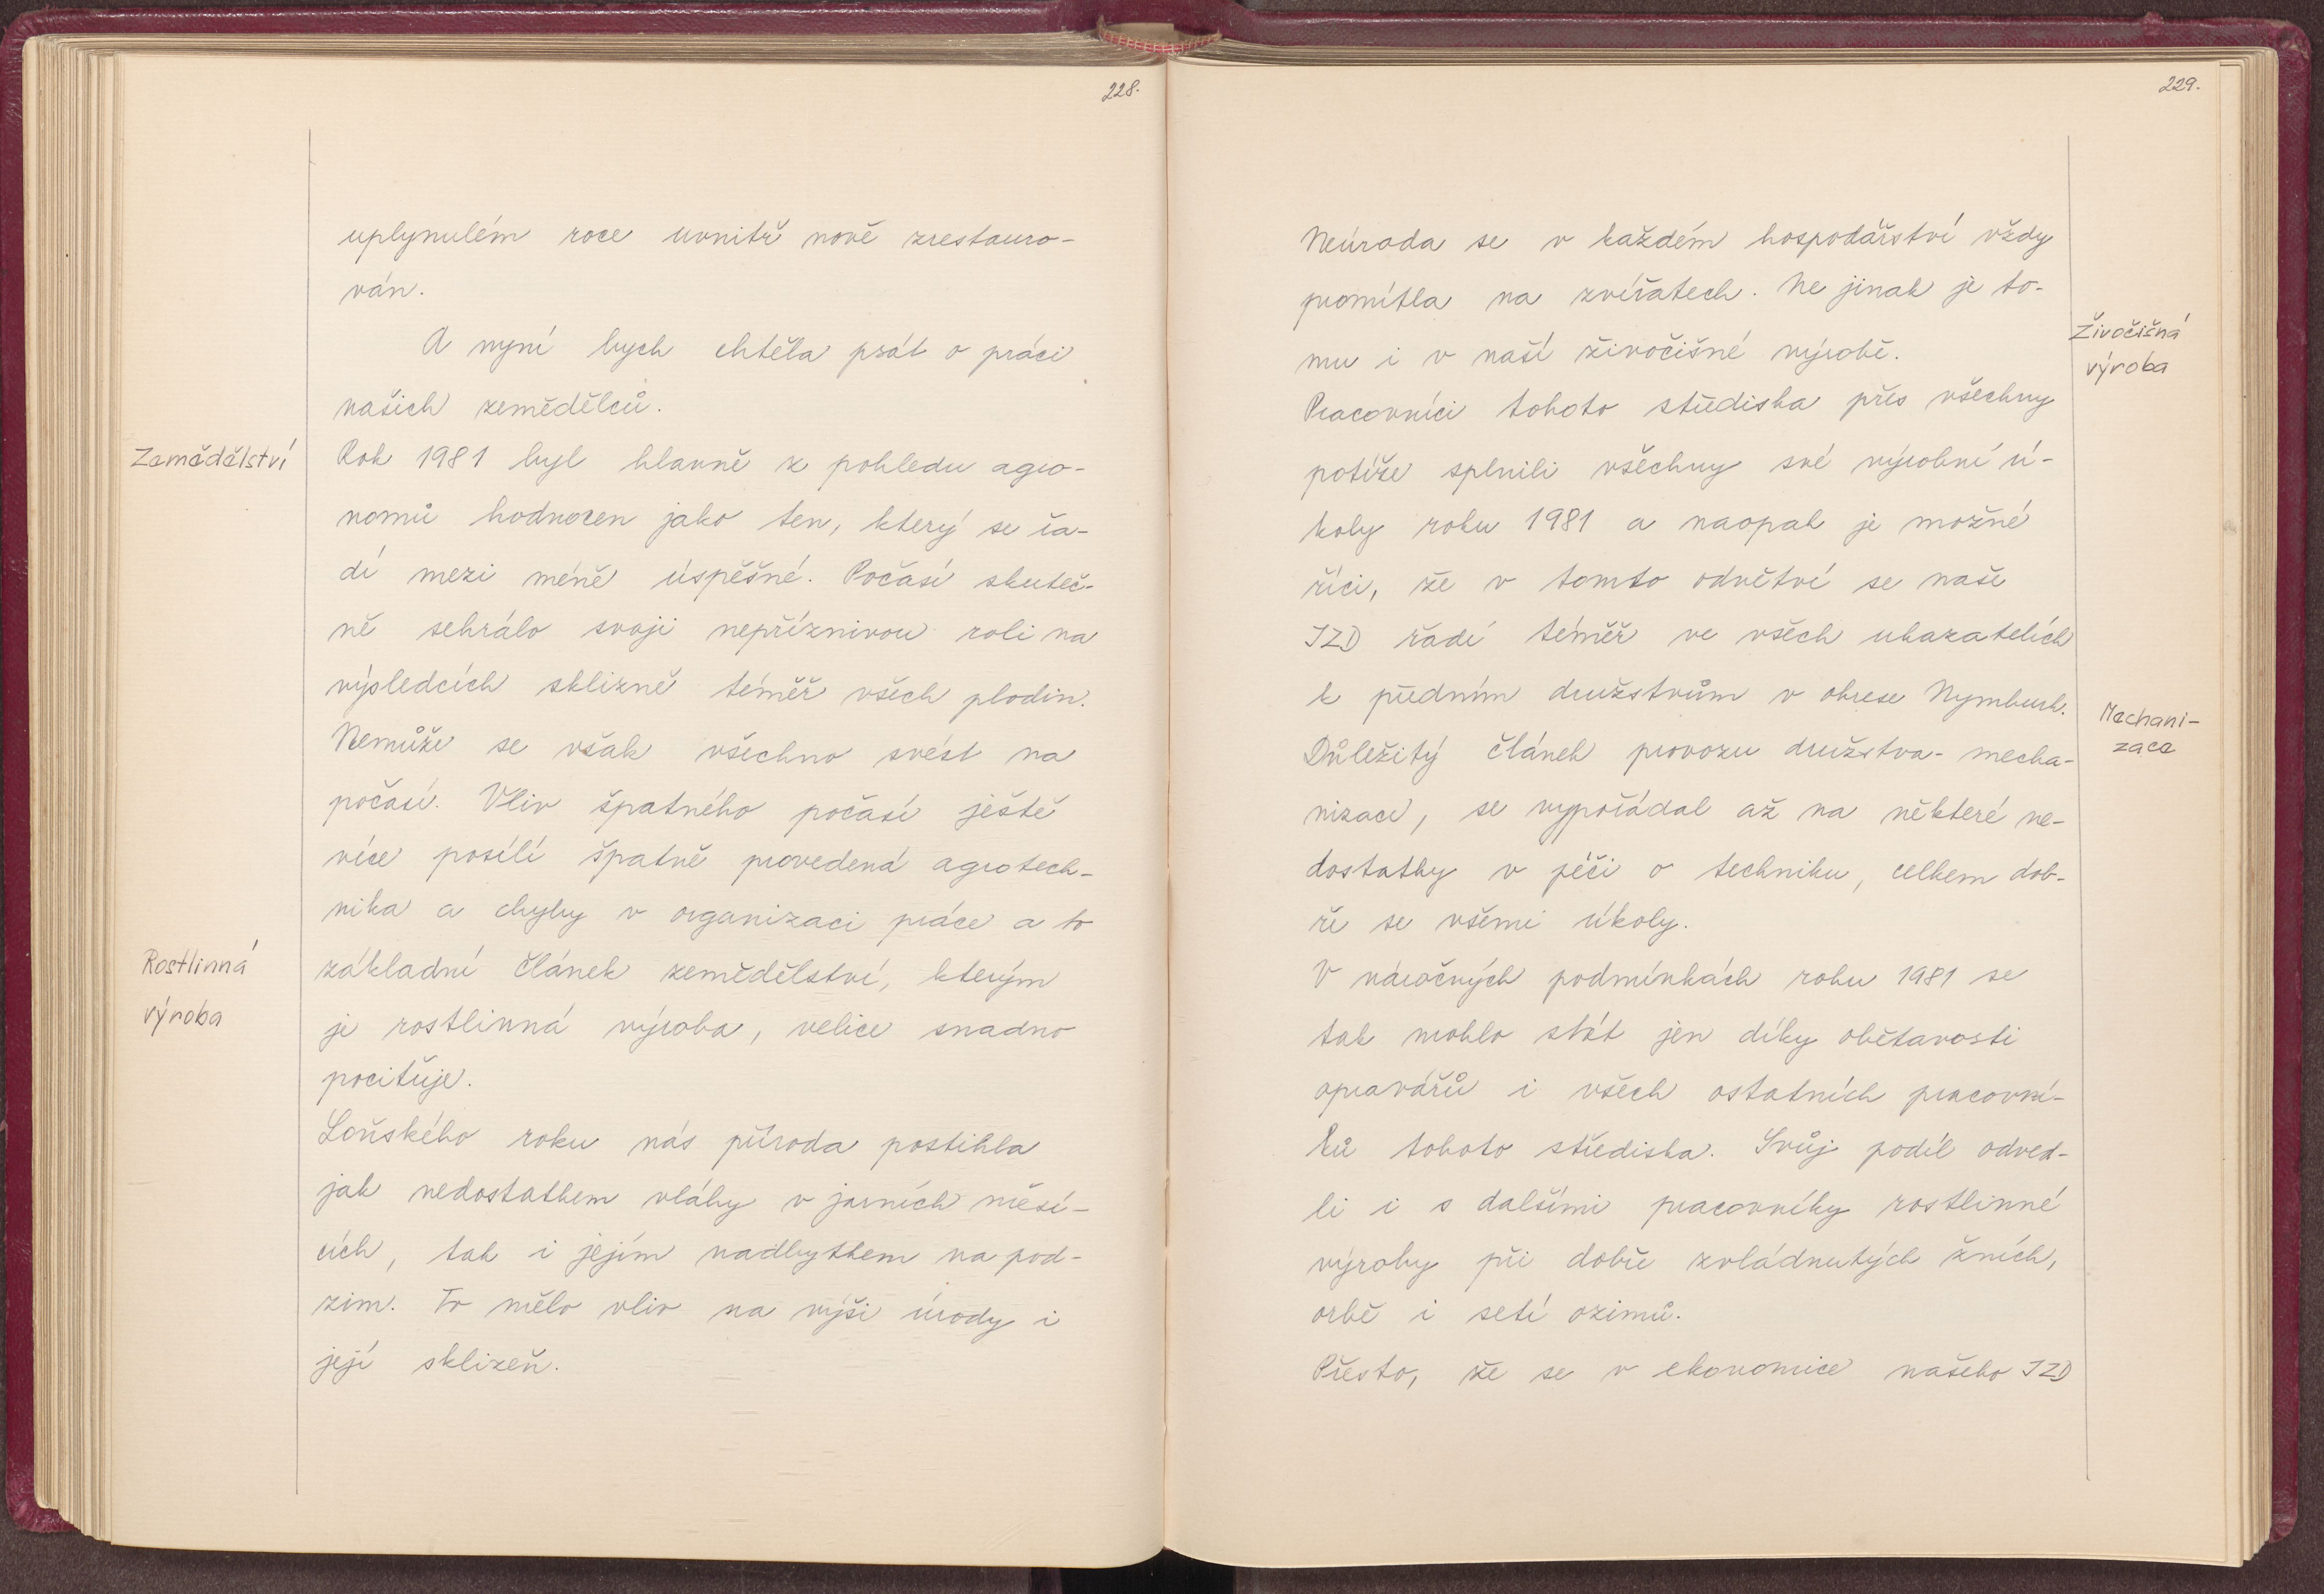 228.
uplynulém roce uvnitř nově zrestauro-
ván.
A nyní bych chtěla psát o práci
našich zemědělců.
Zemědělství
Rok 1981 byl hlavně z pohledu agro-
nomů hodnocen jako ten, který se řa-
dí mezi méně úspěšné. Počasí skuteč-
ně sehrálo svoji nepříznivou roli na
výsledcích sklizně téměř všech plodin.
Nemůže se však všechno svést na
počasí. Vliv špatného počasí ještě
více posílí špatně provedená agrotech-
nika a chyby v organizaci práce a to
Rostlinná
výroba
základní článek zemědělství, kterým
je rostlinná výroba, velice snadno
pocítuje.
Loňského roku nás příroda postihla
jak nedostatkem vláhy v jarních měsí-
cích, tak i jejím nadbytkem na pod-
zim. To mělo vliv na výši úrody i
její sklizeň.
229.
Neúroda se v každém hospodářství vždy
promítla na zvířatech. Ne jinak je to-
mu i v naší živočišné výrobě.
Živočišná
výroba
Pracovníci tohoto střediska přes všechny
potíže splnili všechny své výrobní ú-
koly roku 1981 a naopak je možné
říci, že v tomto odvětví se naše
JZD řadí téměř ve všech ukazatelích
k předním družstvům v okrese Nymburk.
Mechani-
zace
Důležitý článek provozu družstva - mecha-
nizace, se vypořádal až na některé ne-
dostatky v péči o techniku, celkem dob-
ře se všemi úkoly.
V náročných podmínkách roku 1981 se
tak mohlo stát jen díky obětavosti
opravářů i všech ostatních pracovní-
ků tohoto střediska. Svůj podíl odved-
li i s dalšími pracovníky rostlinné
výroby při dobře zvládnutých žních,
orbě i setí ozimů.
Přesto, že se v ekonomice našeho JZD